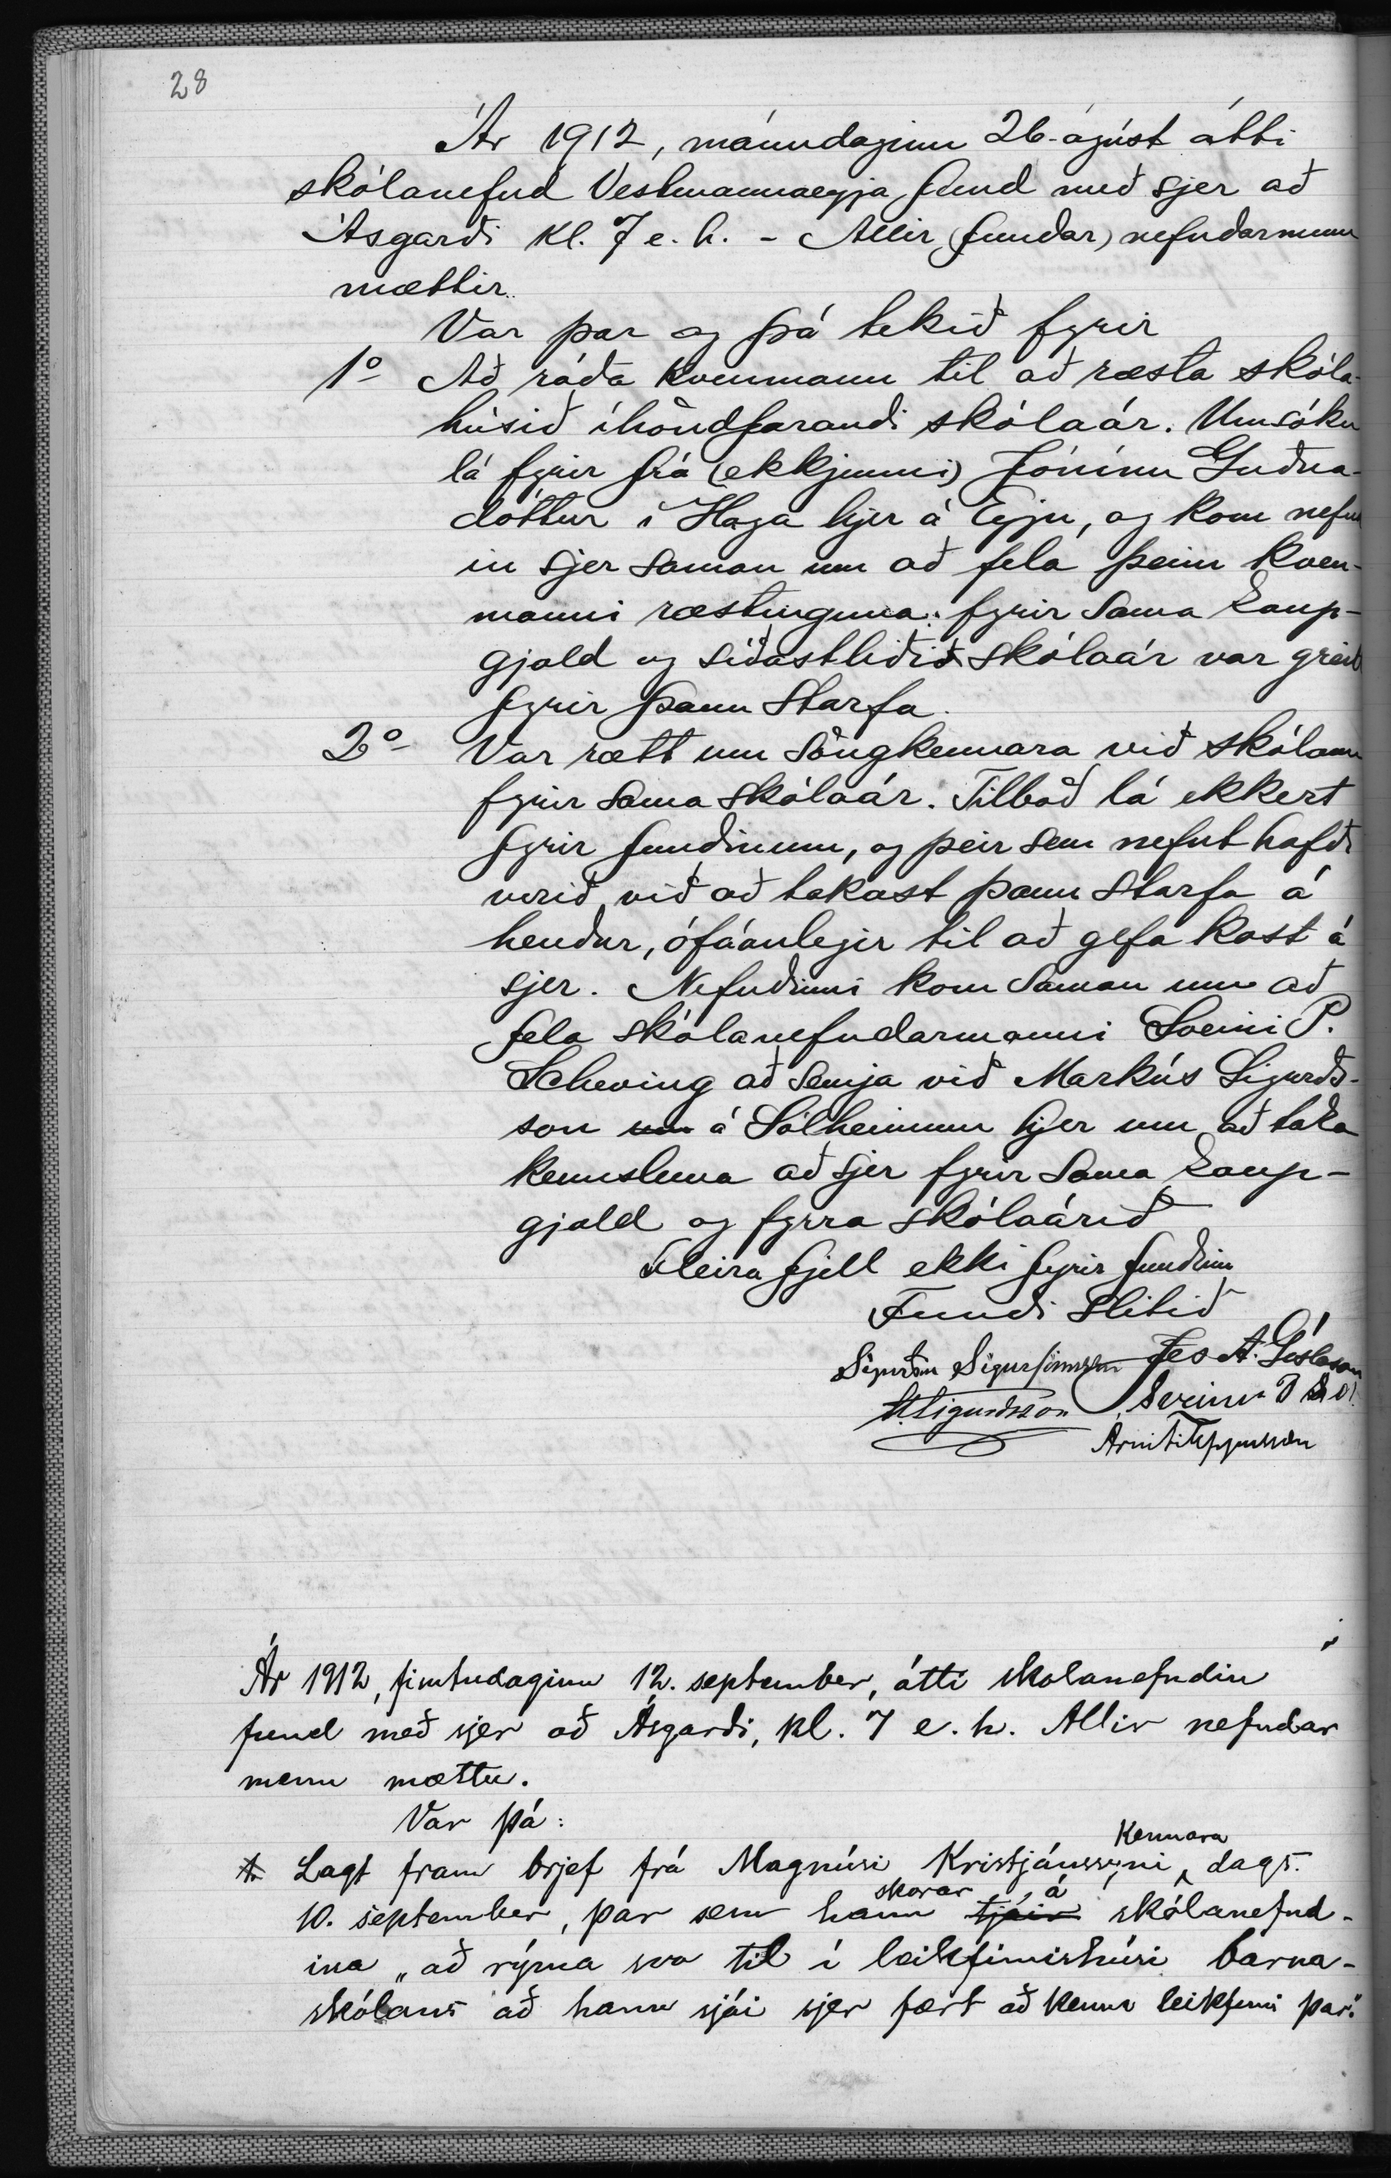 28
Ár 1912, mánudaginn 26. ágúst átti
skólanefnd Vestmannaeyja fund með sjer að
Ásgarði kl. 7 e. h. - Allir (fundar) nefndarmenn
mættir.
Var þar og þá tekið fyrir
1º Að ráða kvenmann til að ræsta skóla-
húsið íhöndfarandi skólaár. Umsókn
lá fyrir frá (ekkjunni) Jónínu Guðna-
dóttur í Haga hjer á Eyju, og kom nefnd
in sjer saman um að fela þeim kven-
manni ræstinguna: fyrir sama kaup-
gjald og síðastliðið skólaár var greitt
fyrir þann starfa.
2º Var rætt um söngkennara við skólann
fyrir sama skólaár. Tilboð lá ekkert
fyrir fundinum, og þeir sem nefnt hafði
verið við að takast þann starfa á
hendur, ófáanlegir til að gefa kost á
sjer. Nefndinni kom saman um að
fela skólanefndarmanni Sveini P.
Scheving að semja við Markús Sigurðs-
son um á Sólheimum hjer um að taka
kennsluna að sjer fyrir sama kaup-
gjald og fyrra skólaárið
Fleira fjell ekki fyrir fundinn
Fundi slitið
Sigurður Sigurfinnsson Jes A. Gíslason
H. Sigurðsson Sveinn P
Árni Filippusson
Ár 1912, fimtudaginn 12. september, átti skolanefndin
fund með sjer að Ásgarði, kl. 7 e. h. Allir nefndar
menn mættu.
Var þá:
Kennara
Lagt fram brjef frá Magnúsi Kristjánssyni, dags.
skorar á
10. september, þar sem hann tjáir skólanefnd-
ina „að rýma svo til í leikfimishúsi barna-
skólans að hann sjái sjer fært að kenna leikfimi þar."